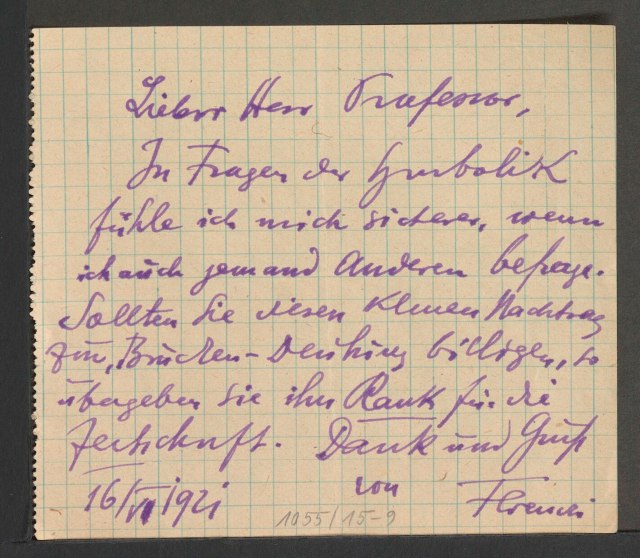 Lieber Herr Professor,
In Fragen der Symbolik
fühle ich mich sicherer, wenn
ich auch jemand Anderen befrage.
Sollten Sie diesen kleinen Nachtrag
zur „Brücken-Deutung billigen, so
übergeben Sie ihn Rank für die
Zeitschrift. Dank und Gruß
von
16/VI 1921 Ferenczi
1055/15-9